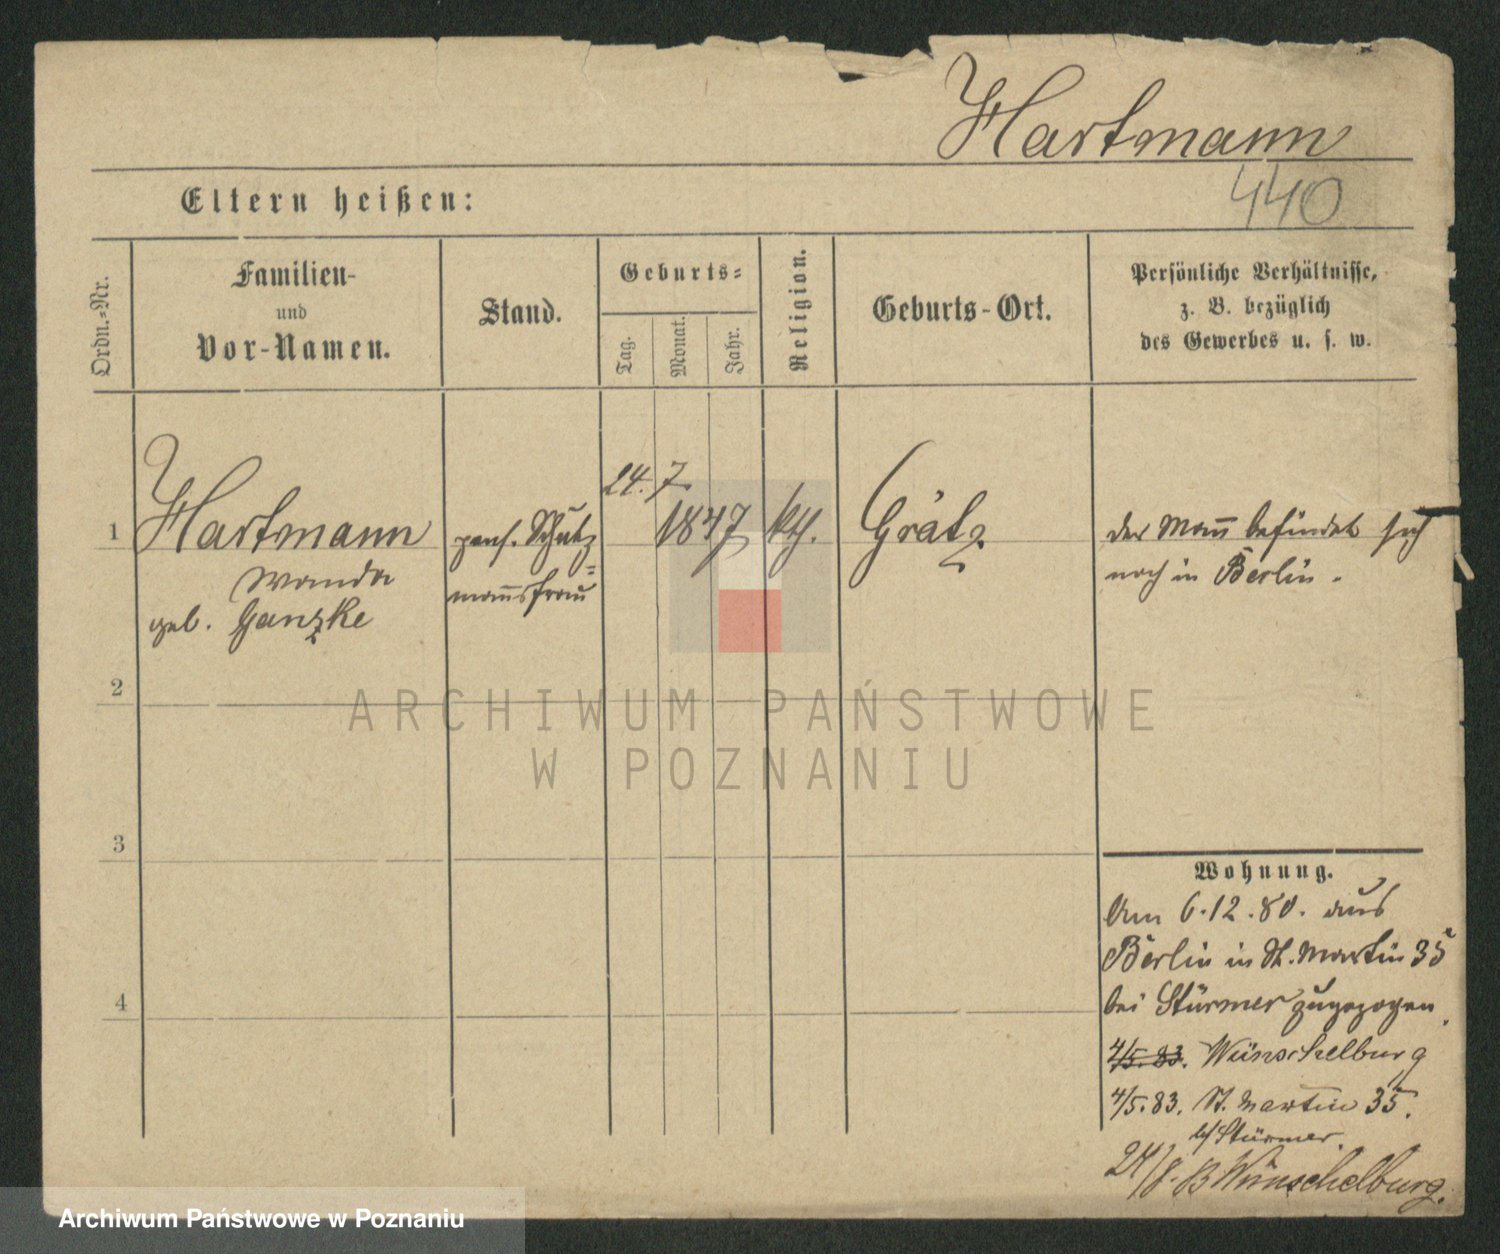 Hartmann
440
Eltern heißen:
Ordn.-Nr.
Familien-
und
Vor-Namen.
Stand.
Geburts-
Tag.
Monat.
Jahr.
Religion.
Geburts-Ort.
Persönliche Verhältnisse,
z. B. bezüglich
des Gewerbes u. s. w.
1
Hartmann
Wanda
geb. Ganzke
pens. Schutz
=
mannsfrau
24. 7.
1847
kth.
Grätz
der Mann befindet sich
noch in Berlin.
2
3
4
Wohnung.
Am 6.12.80. aus
Berlin in St. Martin 35
bei Stürmer zugezogen.
4/5.83. Wünschelburg
4/5.83. St. Martin 35.
b/ Stürmer.
24/8. 83 Wünschelburg.
ARCHIWUM PAŃSTWOWE
W POZNANIU
Archiwum Państwowe w Poznaniu